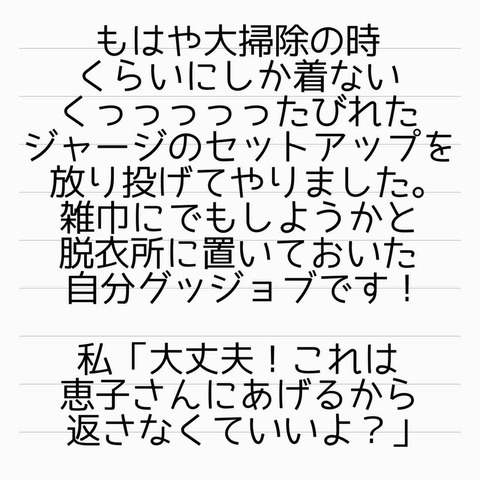 もはや大掃除の時
くらいにしか着ない
くっっっっったびれた
ジャージのセットアップを
放り投げてやりました。
雑巾にでもしようかと
脱衣所に置いておいた
自分グッジョブです！
私「大丈夫！これは
恵子さんにあげるから
返さなくていいよ？」